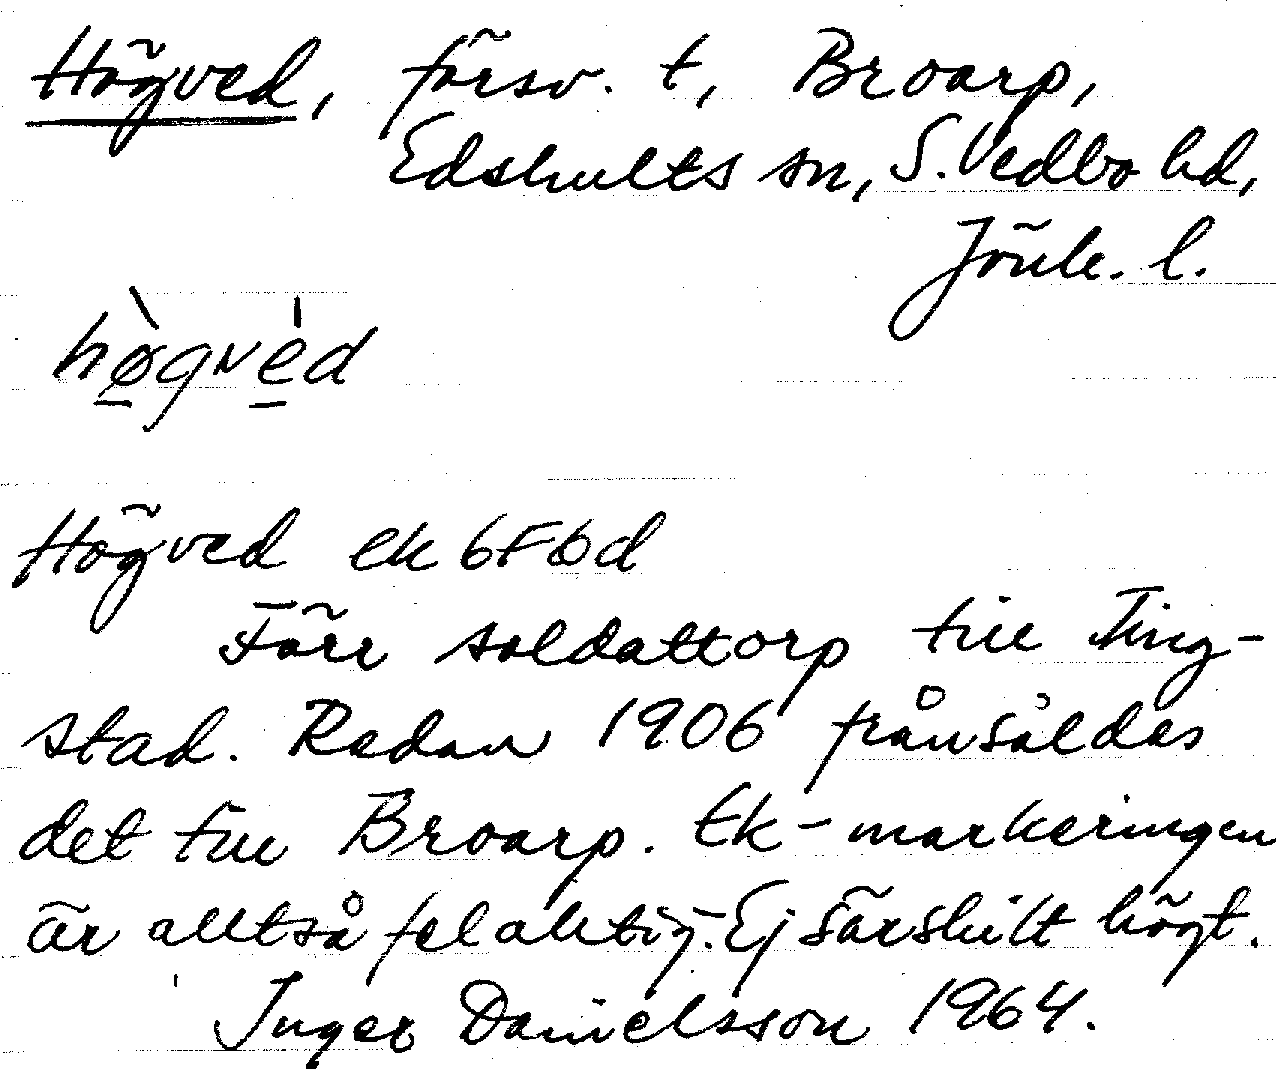 Högved, försv. t, Broarp,
Edshults sn, S. Vedbo hd,
Jönk. l.
hø̱̀gvè̱d
Högved ek 6F6d
Förr soldattorp till Ting-
stad. Redan 1906 frånsåldes
det till Broarp. Ek-markeringen
är alltså felaktig. Ej särskilt högt.
Inger Danielsson 1964.